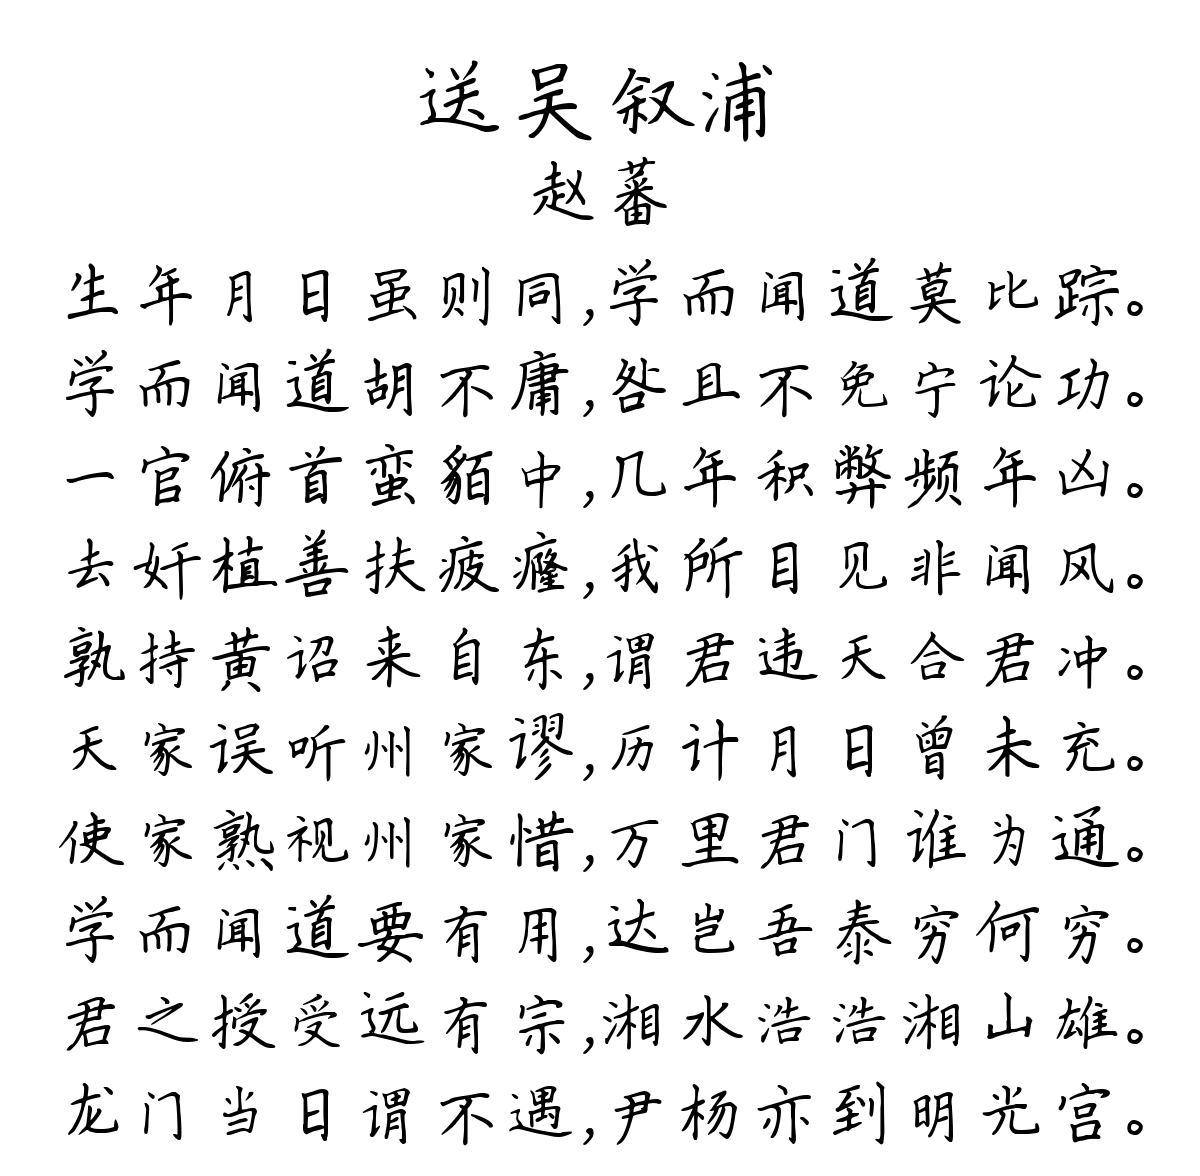 送吴叙浦
赵蕃
生年月日虽则同,学而闻道莫比踪。
学而闻道胡不庸,咎且不免宁论功。
一官俯首蛮貊中,几年积弊频年凶。
去奸植善扶疲癃,我所目见非闻风。
孰持黄诏来自东,谓君违天合君冲。
天家误听州家谬,历计月日曾未充。
使家熟视州家惜,万里君门谁为通。
学而闻道要有用,达岂吾泰穷何穷。
君之授受远有宗,湘水浩浩湘山雄。
龙门当日谓不遇,尹杨亦到明光宫。